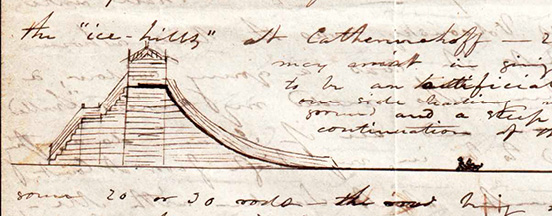 the "ice-hills" at Catherinehoff — 2
may assist in giving
to be an artificial
one side leading
and a steep
continuation of th
some 20 or 30 rods — the road being